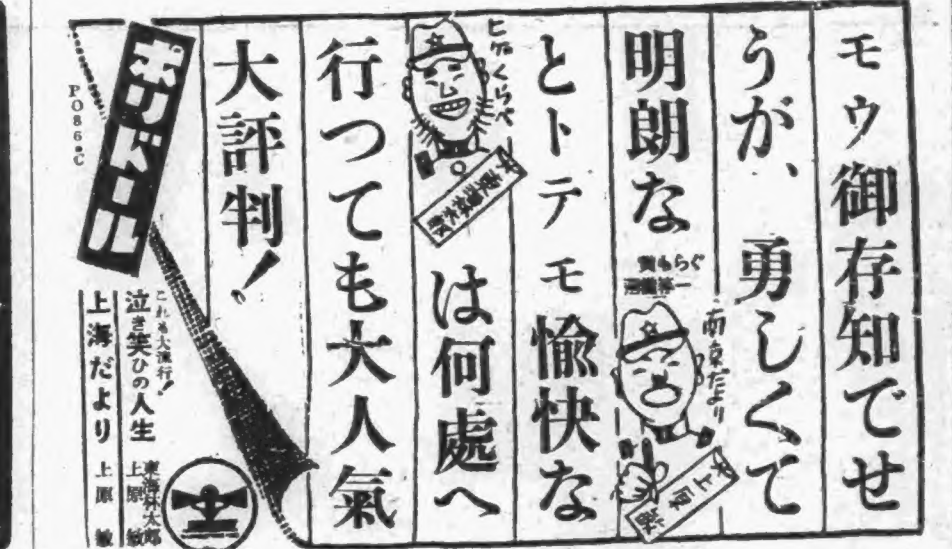 モウ御存知でせ
うが、勇しくて
明朗な
南京だより
上原敏
とトテモ愉快な
ヒゲくらべ
東海林太郎
は何處へ
行つても大人氣
大評判!
ポリドール
PO86・C
これも大流行!
泣き笑ひの人生
東海林太郎
上原敏
上海だより 上原敏